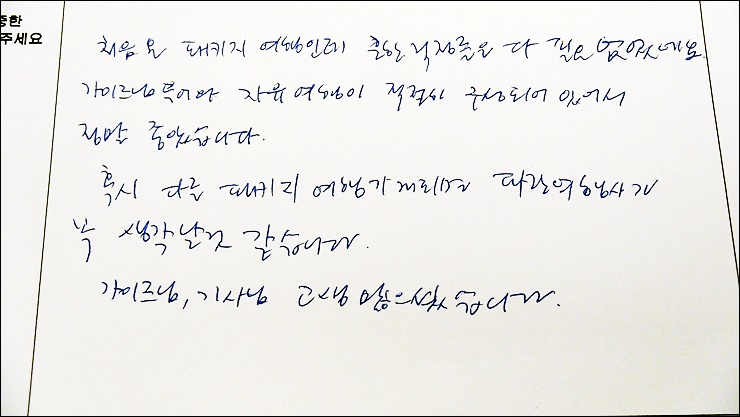 중한
주세요
처음 온 패키지 여행인데 흔한 걱정들은 다 필요 없었네요.
가이드님 투어와 자유여행이 적절히 구성되어 있어서
정말 좋았습니다.
혹시 다른 패키지 여행가게되면 파란여행사가
꼭 생각날것 같습니다.
가이드님, 기사님 고생 많으셨습니다.